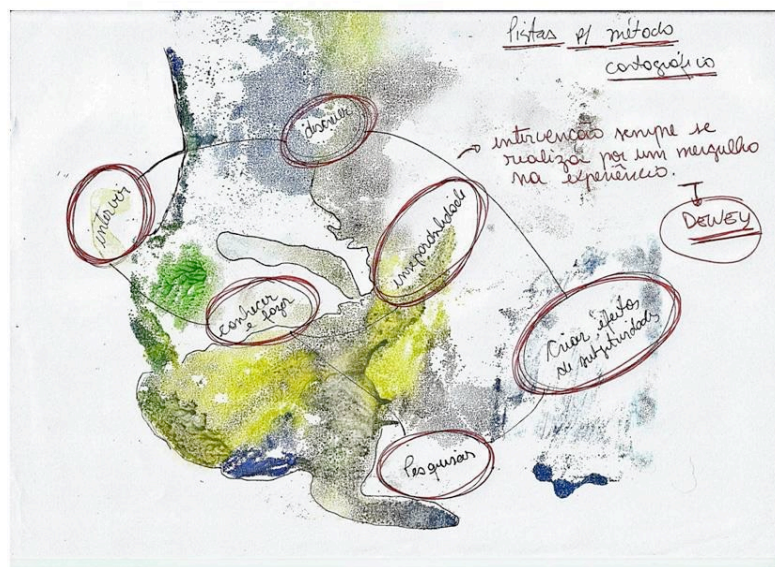 Pistas p/ método
cartográfico
descrever
intervenção sempre se
realiza por um mergulho
na experiência.
DEWEY
intervir
inseparabilidade
conhecer
e fazer
Criar efeitos
de subjetividades
Pesquisar